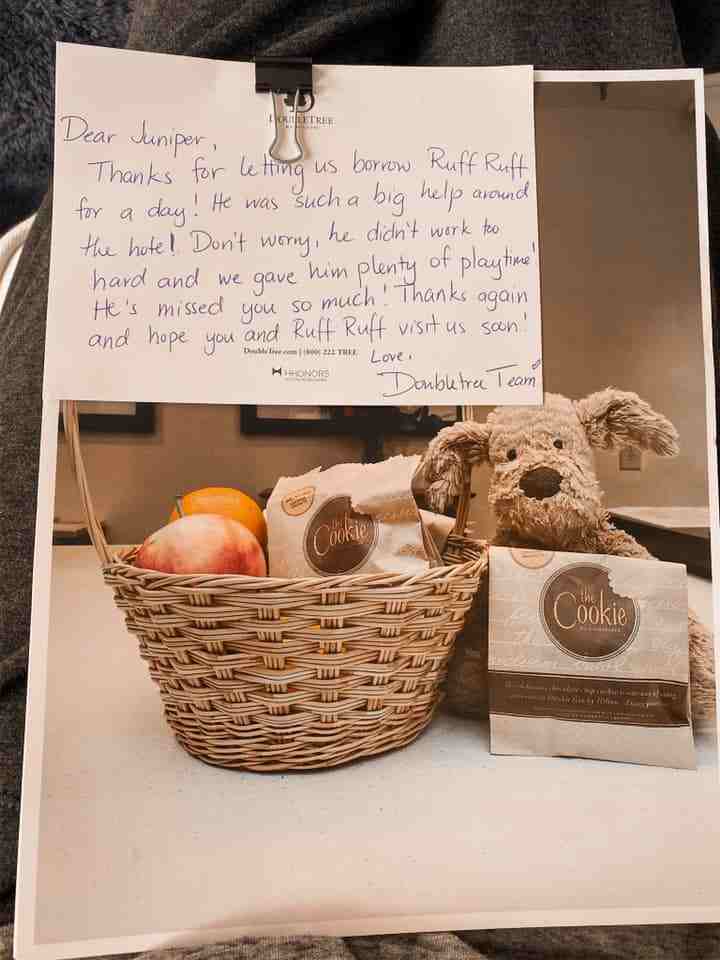 DOUBLETREE
BY HILTON
Dear Juniper,
Thanks for letting us borrow Ruff Ruff
for a day! He was such a big help around
the hotel. Don't worry, he didn't work too
hard and we gave him plenty of playtime!
He's missed you so much! Thanks again
and hope you and Ruff Ruff visit us soon!
DoubleTree.com | (800) 222 TREE
Love,
HHONORS
Doubletree Team
the
Cookie
the
Cookie